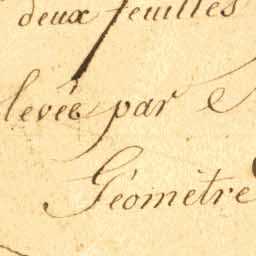 deux feuilles
levée par
Géomètre